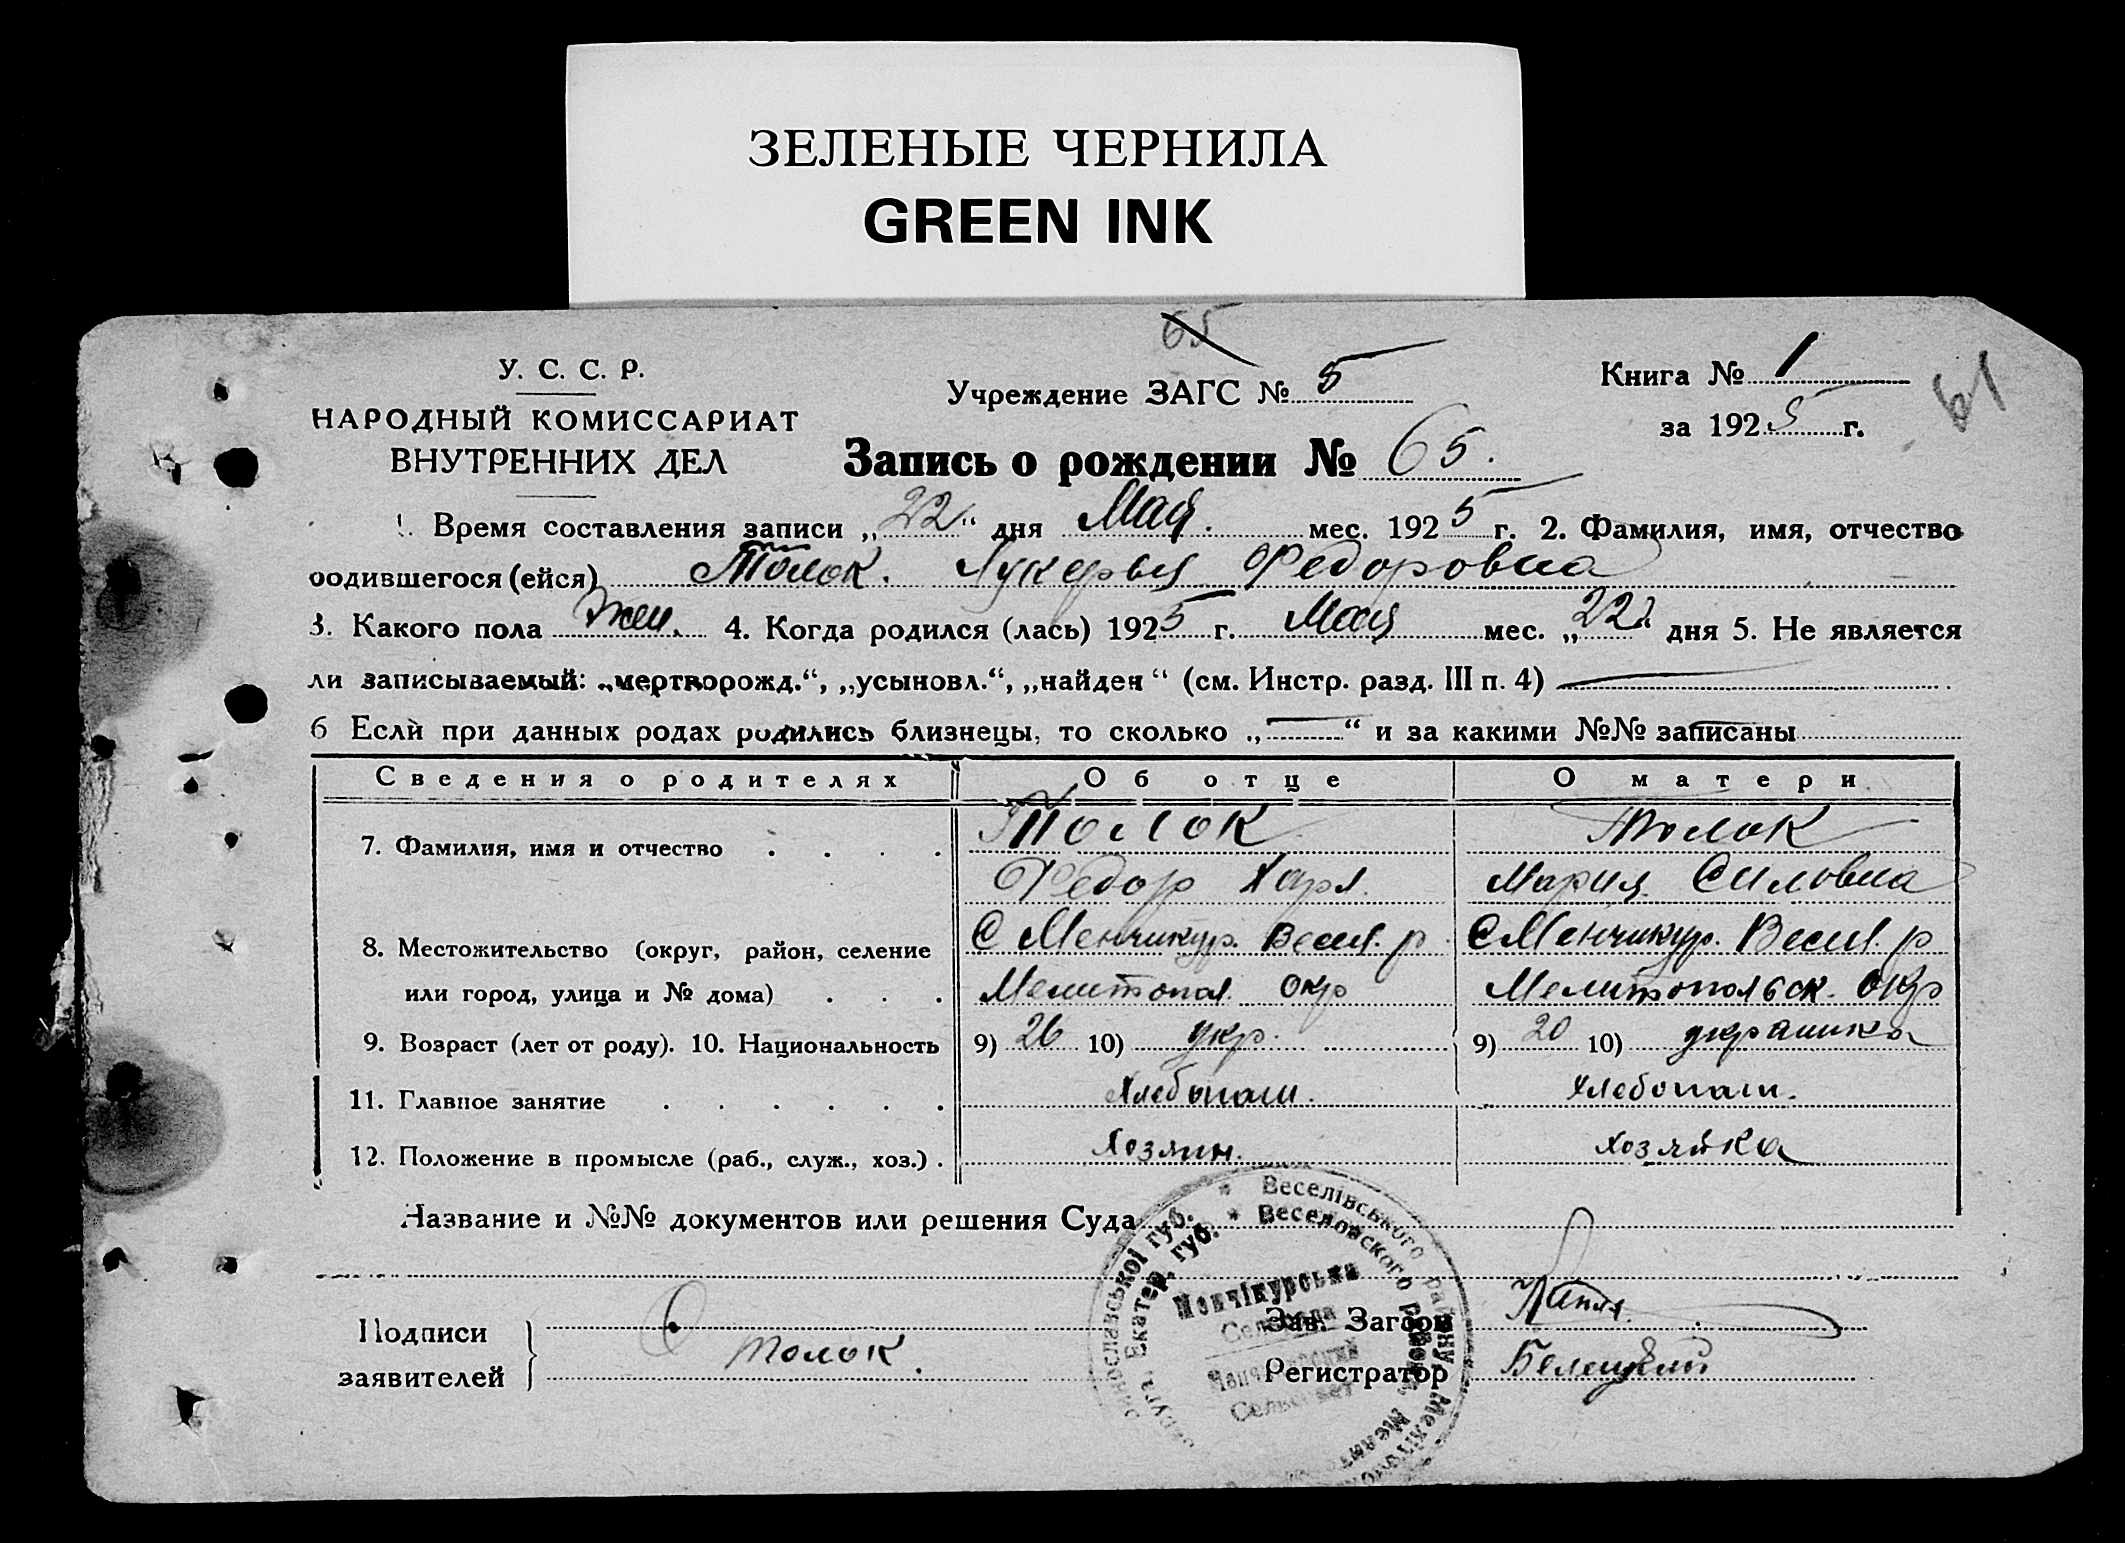 ЗЕЛЕНЫЕ ЧЕРНИЛА
GREEN INK
65
У. С. С. Р.
НАРОДНЫЙ КОМИССАРИАТ
ВНУТРЕННИХ ДЕЛ
Учреждение ЗАГС № 5
Книга № 1
за 1925 г.
61
Запись о рождении № 65.
1. Время составления записи „22“ дня Мая. мес. 1925 г. 2. Фамилия, имя, отчество
родившегося (ейся) Толок. Лукерья Федоровна
3. Какого пола жен. 4. Когда родился (лась) 1925 г. Мая мес. „22“ дня 5. Не является
ли записываемый: „мертворожд.“, „усыновл.“, „найден“ (см. Инстр. разд. III п. 4) —
6 Если при данных родах родились близнецы, то сколько „—“ и за какими №№ записаны
Сведения о родителях Об отце О матери
7. Фамилия, имя и отчество . . . . Толок Толок
Федор Хар. Мария Силовна
8. Местожительство (округ, район, селение С Менчикур. Весел. р. С Менчикур. Весел. р
или город, улица и № дома) . . . Мелитопол. окр Мелитопольск. окр
9. Возраст (лет от роду). 10. Национальность 9) 26 10) укр. 9) 20 10) украинка
11. Главное занятие . . . . . . Хлебопаш. Хлебопаш.
12. Положение в промысле (раб., служ., хоз.) . Хозяин. Хозяйка
Название и №№ документов или решения Суда
* Веселівського району Меліто
* Веселовского
Екатер. губ.
Менчікурська
Сельрада
Сельсовет
Подписи
заявителей
Толок.
Зав. Загсом
Регистратор Белецкий